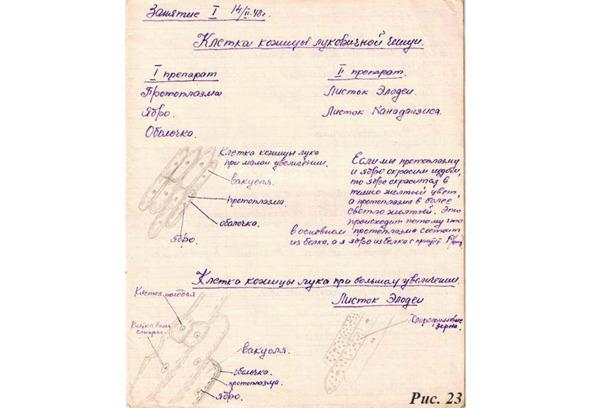 Занятие I 14/II-48г.
Клетка кожицы луковичной чешуи.
I препарат
II препарат.
Протоплазма
Листок Элодеи.
Ядро.
Листок Канадензиса.
Оболочка.
Клетка кожицы лука
при малом увеличении.
вакуоля.
протоплазма
оболочка.
ядро.
Если мы протоплазму
и ядро окрасим иодом,
то ядро окраситься в
темно желтый цвет,
а протоплазма в более
светло желтый. Это
происходит потому что
в основном протоплазма состоит
из белка, а ядро из белка с
Клетка кожицы лука при большом увеличении.
Листок Элодеи
Клетка молодая
Клетка более
старая.
Хлорофиловые
зерна.
вакуоля.
оболочка.
протоплазма.
ядро.
Рис. 23